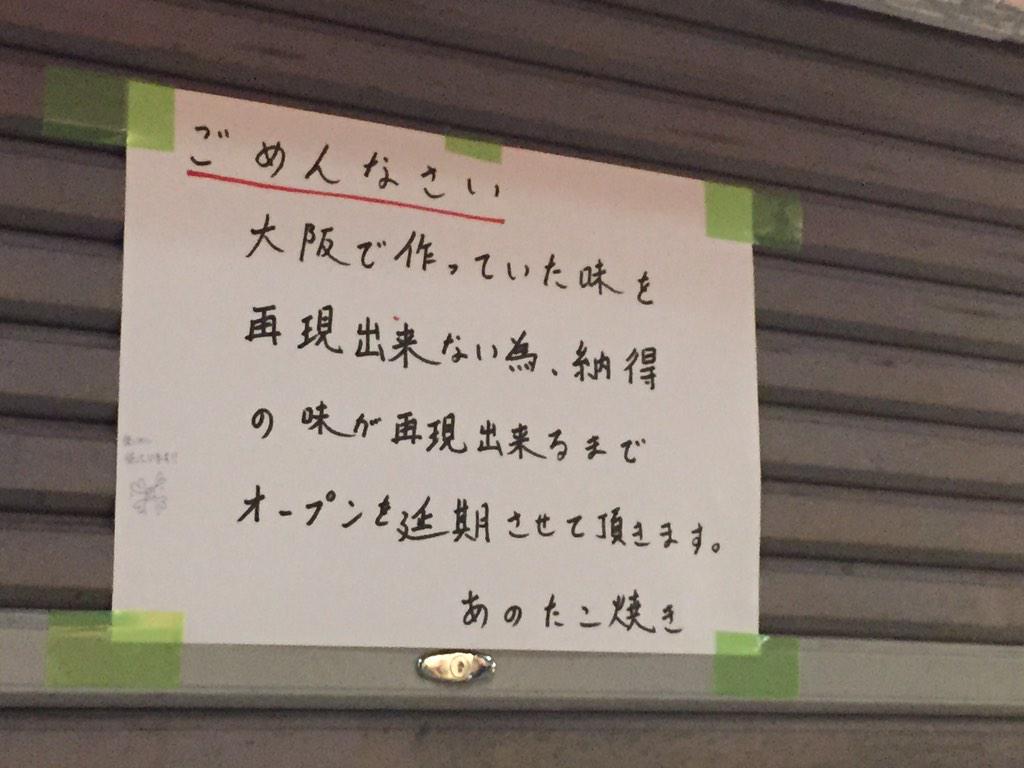 ごめんなさい
大阪で作っていた味を
再現出来ない為、納得
の味が再現出来るまで
オープンを延期させて頂きます。
あのたこ焼き